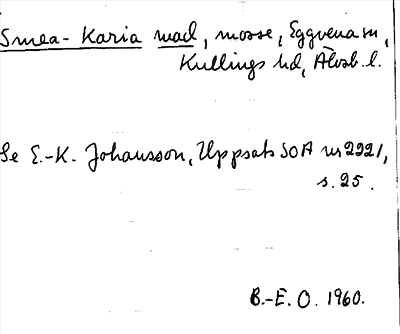 Smea-Karia mad, mosse, Eggvena sn,
Kullings hd, Älvsb. l.
Se E.-K. Johansson, Uppsats SOA nr 2221,
s. 25.
B.-E. O. 1960.